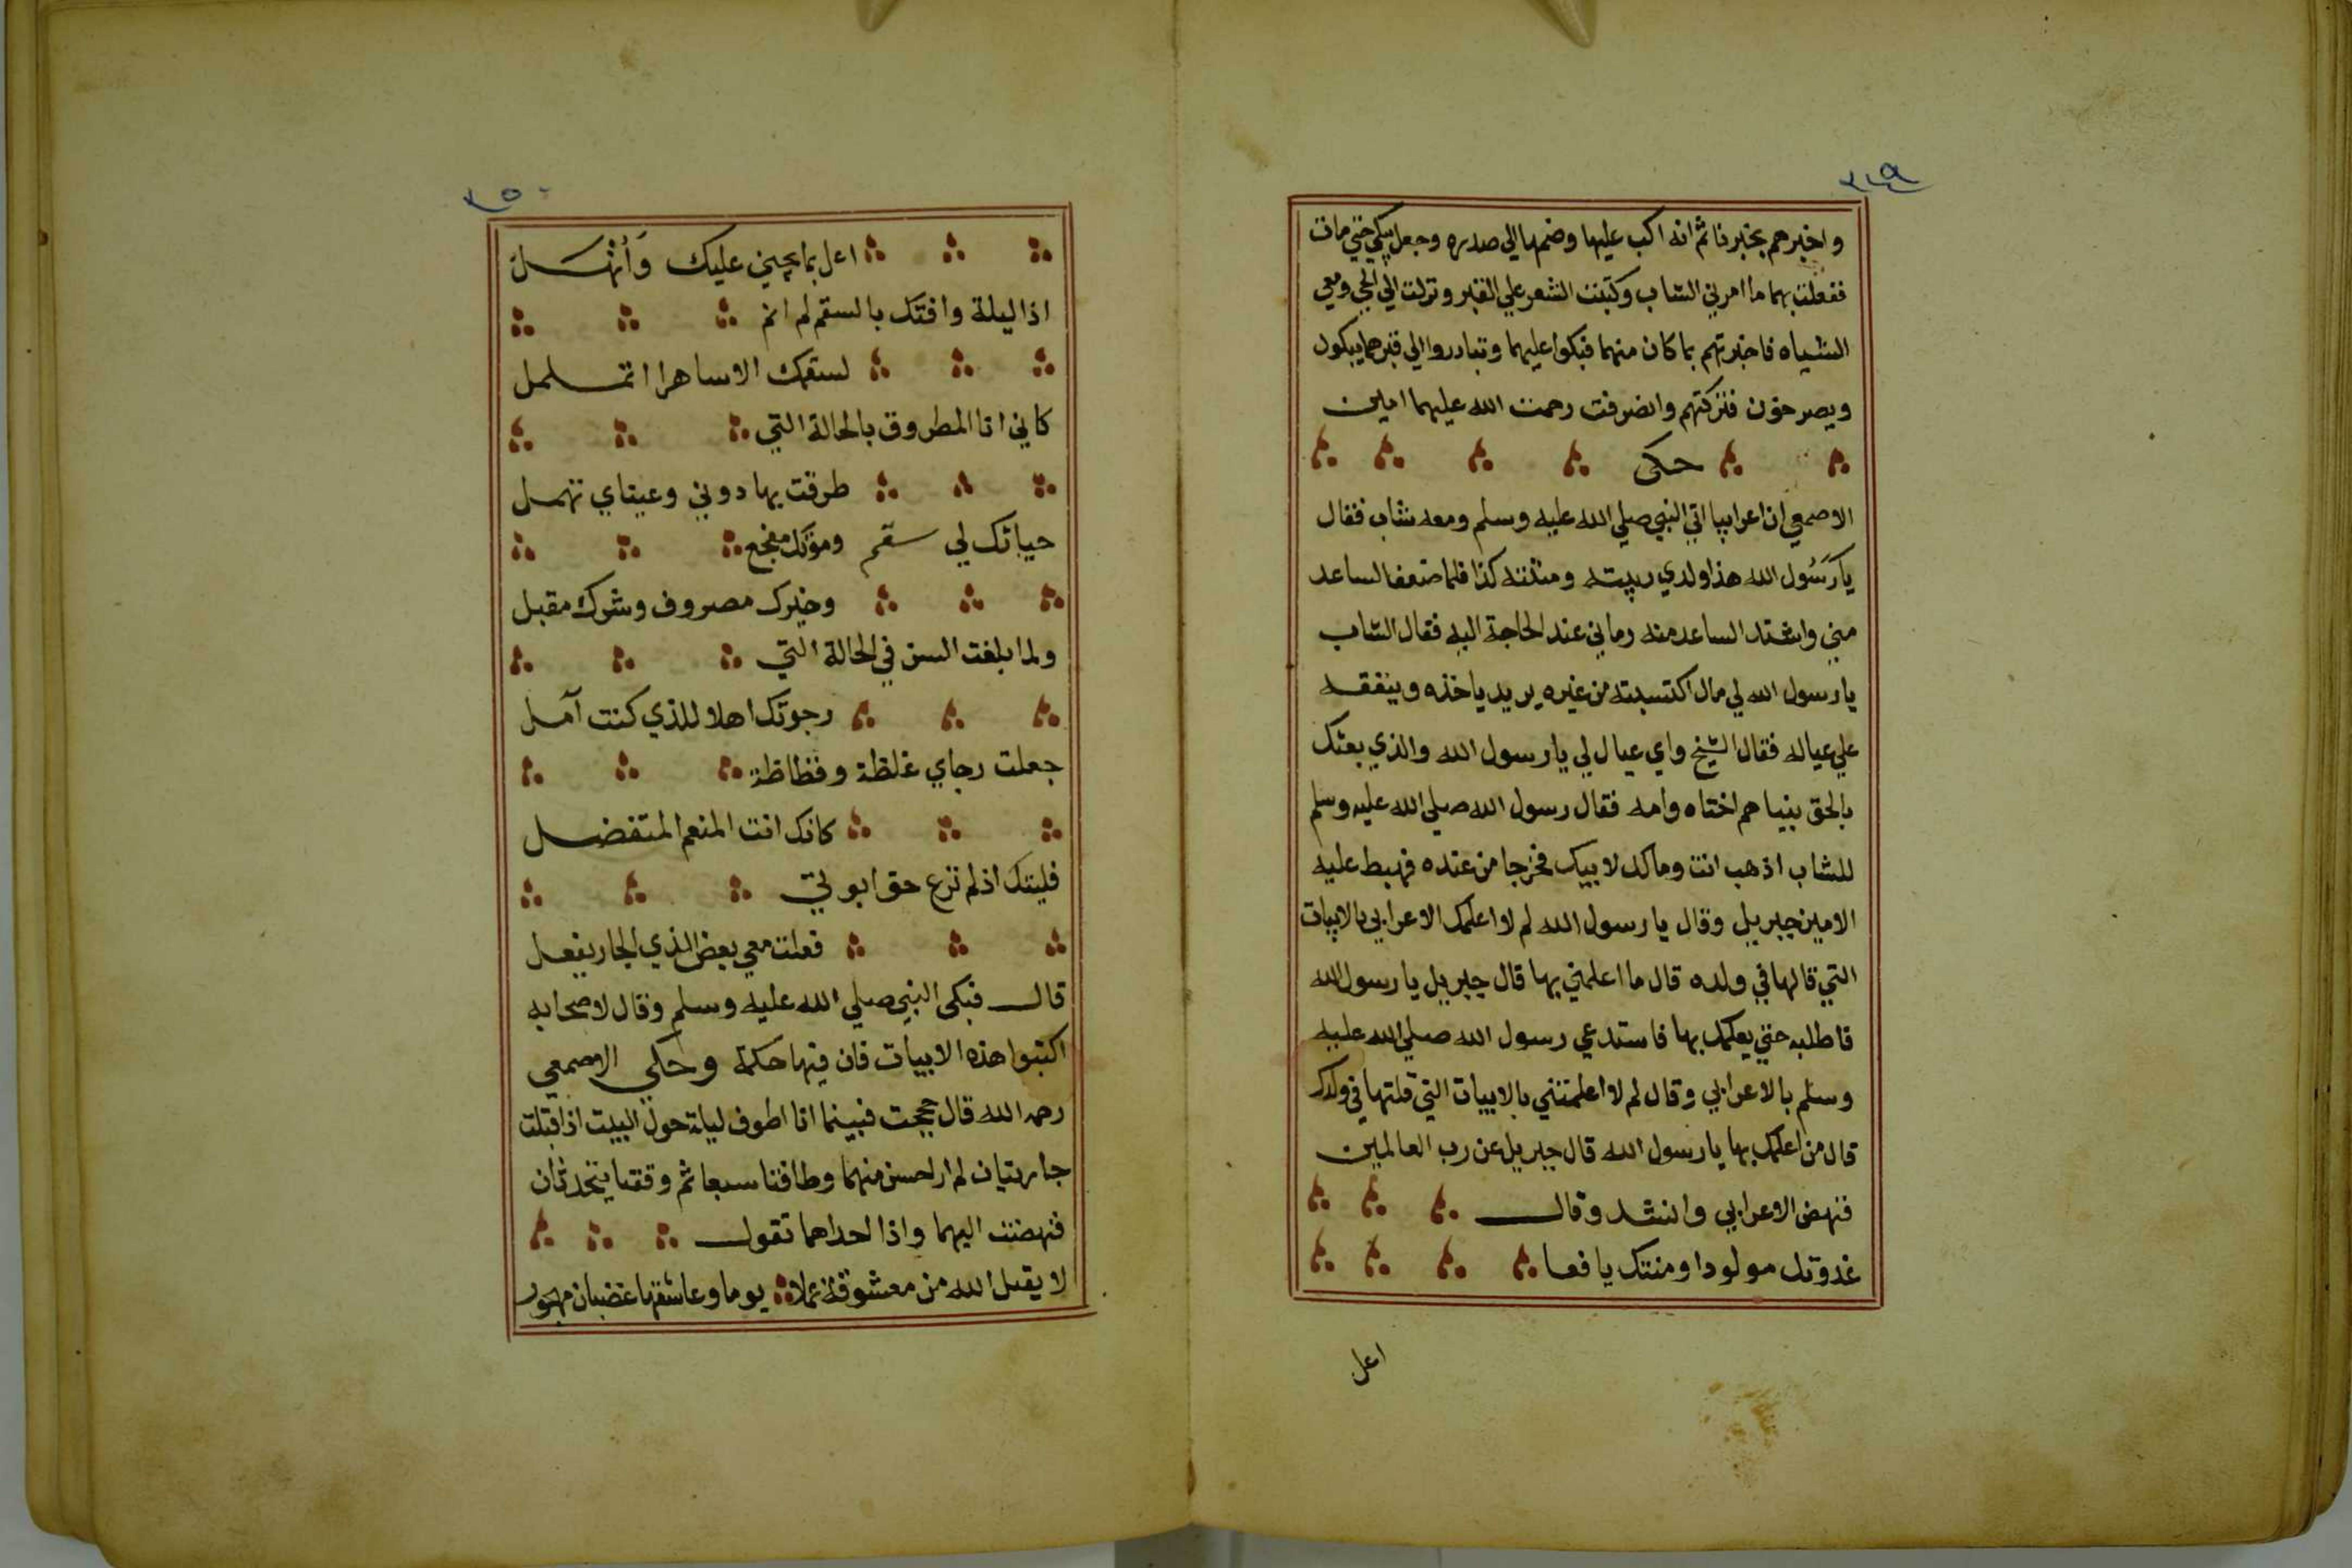 ٣٤٩
واخبرهم بخبرنا ثم انه اكب عليها وضمها الي صدره وجعل يبكي حتي مات
ففعلت بهما ما امرني الشاب وكتبت الشعر علي القبر ونزلت الي الحي ومعي
الشياه فاخبرتهم بما كان منهما فبكوا عليهما وتبادروا الي قبرهما يبكون
ويصرخون فتركتهم وانصرفت رحمت الله عليهما امين
حكى
الاصمعي ان اعرابيا اتي النبي صلي الله عليه وسلم ومعه شاب فقال
يا رَسُول الله هذا ولدي ربيته ومنتنه كذا فلما ضعف الساعد
مني واشتد الساعد منه رماني عند الحاجة اليه فقال الشاب
يا رسول الله لي مال اكتسبته من غيره يريد ياخذه وينفقه
علي عياله فقال الشيخ واي عيال لي يا رسول الله والذي بعثك
بالحق بنيا هم اختاه وامه فقال رسول الله صلي الله عليه وسلم
للشاب اذهب انت ومالك لابيك فخرجا من عنده فهبط عليه
الامين جبريل وقال يا رسول الله لم لا اعلمك الاعرابي بالابيات
التي قالها في ولده قال ما اعلمني بها قال جبريل يا رسول الله
فاطلبه حتي يعلمك بها فاستدعي رسول الله صلي الله عليه
وسلم بالاعرابي وقال لم لا اعلمتني بالابيات التي قلتها في ولدك
قال من اعلمك بها يا رسول الله قال جبريل عن رب العالمين
فنهض الاعرابي وانشد وقال
غذوتك مولودا ومنتك يافعا
اعل
٣٥٠
اعل بما يجيني عليك وَأنْهَـل
اذا ليلة وافتك بالسقم لم انم
لسقمك الا ساهرا اتململ
كاني انا المطروق بالحالة التي
طرقت بها دوني وعيناي تهمل
حياتك لي سقم وموتك مفجع
وخيرك مصروف وشرك مقبل
ولما بلغت السن في الحالة التي
رجوتك اهلا للذي كنت آمل
جعلت رجاي غلظة وفظاظة
كانك انت المنعم المتفضل
فليتك اذ لم ترع حق ابوتي
فعلت معي بعض الذي الجار يفعل
قال فبكى النبي صلي الله عليه وسلم وقال لاصحابه
اكتبوا هذه الابيات فان فيها حكمة وحكي الاصمعي
رحمه الله قال حججت فبينما انا اطوف ليلة حول البيت اذ اقبلت
جاريتيان لم ار احسن منهما وطافتا سبعا ثم وقفتا يتحدثان
فنهضت اليهما واذا احداهما تقول
لا يقبل الله من معشوقة عملا يوما وعاشقها غضبان مهجور